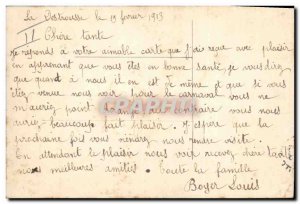 La Destrousse le 19 fevrier 1913
Chère tante
Je reponds à votre aimable carte que j'ais reçue avec plaisir
en apprenant que vous êtes en bonne santé je vous direz
que quand à nous il en est de même et que si vous
étiez venue nous voir pour le carnaval vous ne
m'auriez point dérangé au contraire vous nous
auriez beaucoup fait plaisir. J'espere que la
prochaine fois vous viendrez nous rendre visite.
En attendant le plaisir nous voir recevez chère tante
nos meilleures amitiés. toute la famille
Boyer Louis